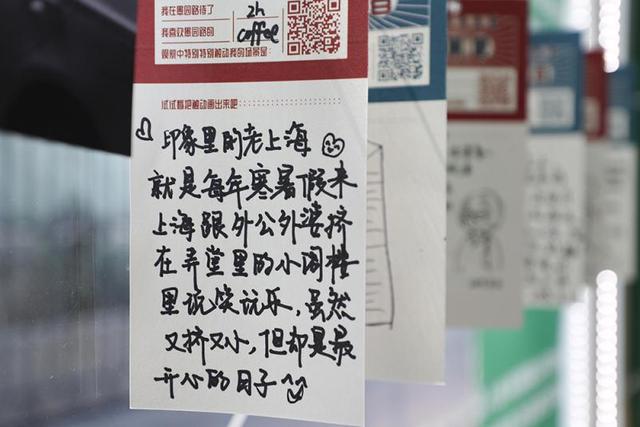 我在愚园路待了 2h
我喜欢愚园路的 coffee
观察中特别特别被动我的场景是：
试试看把被动画出来吧
印象里的老上海
就是每年寒暑假来
上海跟外公外婆挤
在弄堂里的小阁楼
里说笑玩乐，虽然
又挤又小，但却是最
开心的日子